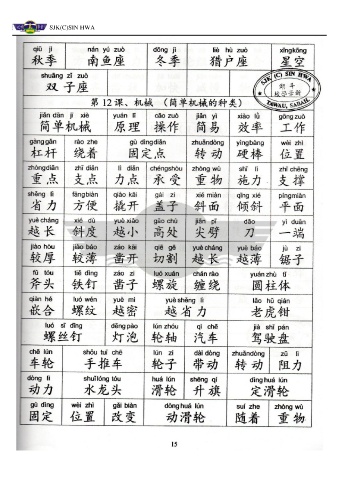 SJK(C)SIN HWA
qiū jì nán yú zuò dōng jì liè hù zuò xīngkōng
秋季 南鱼座 冬季 猎户座 星空
shuāng zǐ zuò
双子座
SJK (C) SIN HWA
TAWAU, SABAH.
第 12 课、机械 (简单机械的种类)
jiǎn dān jī xiè yuán lǐ cāo zuò jiǎn yì xiào lǜ gōng zuò
简单机械 原理 操作 简易 效率 工作
gàng gǎn rào zhe gù dìng diǎn zhuǎn dòng yìng bàng wèi zhì
杠杆 绕着 固定点 转动 硬棒 位置
zhòng diǎn zhī diǎn lì diǎn chéng shòu zhòng wù shī lì zhī chēng
重点 支点 力点 承受 重物 施力 支撑
shěng lì fāng biàn qiào kāi gài zi xié miàn qīng xié píng miàn
省力 方便 撬开 盖子 斜面 倾斜 平面
yuè cháng xié dù yuè xiǎo gāo chù jiān pī dāo yì duān
越长 斜度 越小 高处 尖劈 刀 一端
jiào hòu jiào báo záo kāi qiē gē yuè cháng yuè báo jù zi
较厚 较薄 凿开 切割 越长 越薄 锯子
fǔ tóu tiě dīng záo zi luó xuán chán rào yuán zhù tǐ
斧头 铁钉 凿子 螺旋 缠绕 圆柱体
qiàn hé luó wén yuè mì yuè shěng lì lǎo hǔ qián
嵌合 螺纹 越密 越省力 老虎钳
luó sī dīng dēng pào lún zhóu qì chē jià shǐ pán
螺丝钉 灯泡 轮轴 汽车 驾驶盘
chē lún shǒu tuī chē lún zi dài dòng zhuǎn dòng zǔ lì
车轮 手推车 轮子 带动 转动 阻力
dòng lì shuǐ lóng tóu huá lún shēng qí dìng huá lún
动力 水龙头 滑轮 升旗 定滑轮
gù dìng wèi zhì gǎi biàn dòng huá lún suí zhe zhòng wù
固定 位置 改变 动滑轮 随着 重物
15